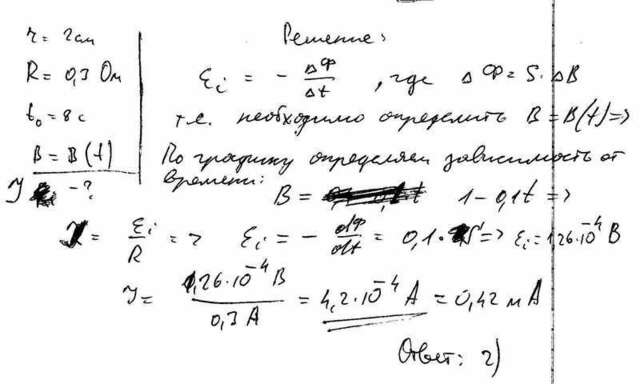 r = 2 см
R = 0,3 Ом
t₀ = 8 с
B = B(t)
I - ?
Решение:
εi = - ΔФ/Δt , где ΔФ = S · ΔB
т.е. необходимо определить B = B(t) =>
По графику определяем зависимость от
времени:
B = 1 - 0,1t =>
I = εi/R => εi = - dФ/dt = 0,1 · S => εi = 1,26·10⁻⁴ В
I = 1,26·10⁻⁴ В / 0,3 А = 4,2·10⁻⁴ А = 0,42 мА
Ответ: 2)